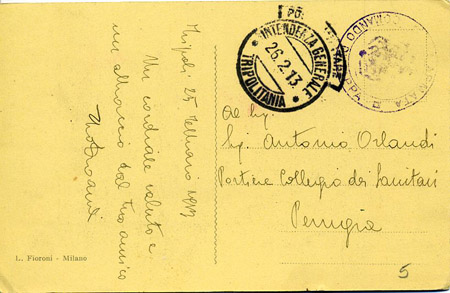 Tripoli 25 Febbraio 1913
Un cordiale saluto e
un abbraccio dal tuo amico
POSTA MILITARE
INTENDENZA GENERALE
26.2.13
TRIPOLITANIA
COMANDO
Al Sig.
Sig. Antonio Orlandi
Portiere Collegio dei Sanitari
Perugia
L. Fioroni - Milano
5